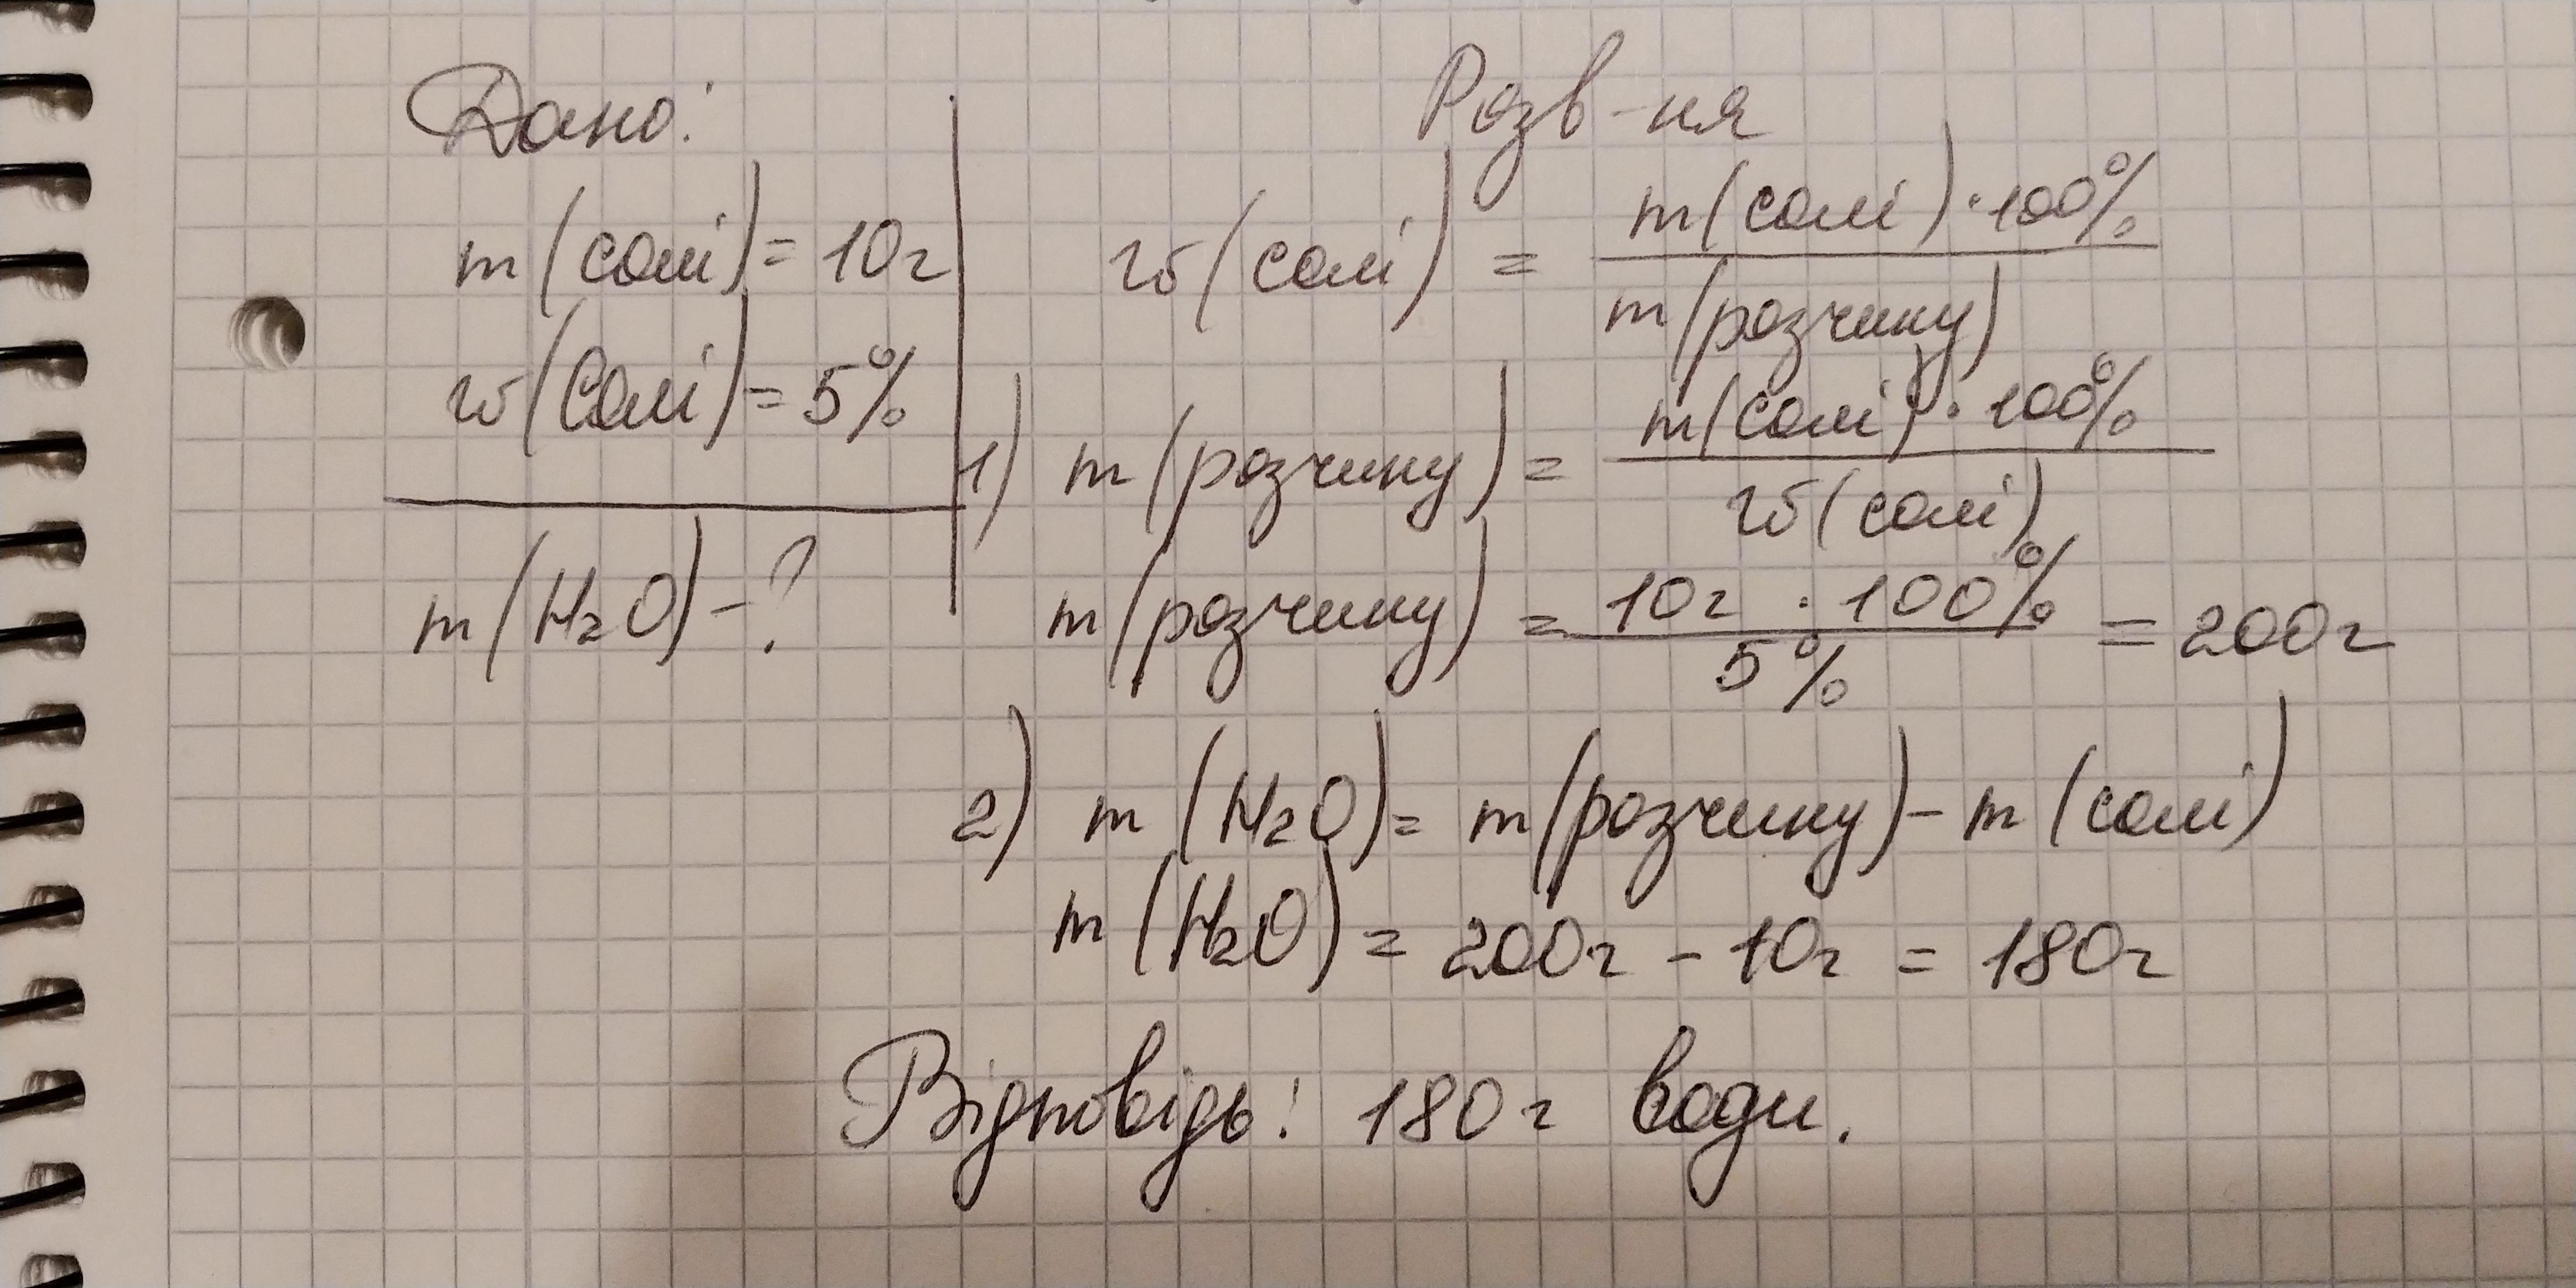 Дано:
m(солі) = 10г
w(солі) = 5%
m(H₂O) - ?
Розв-ня
w(солі) = m(солі) · 100% / m(розчину)
1) m(розчину) = m(солі) · 100% / w(солі)
m(розчину) = 10г · 100% / 5% = 200г
2) m(H₂O) = m(розчину) - m(солі)
m(H₂O) = 200г - 10г = 180г
Відповідь: 180г води.